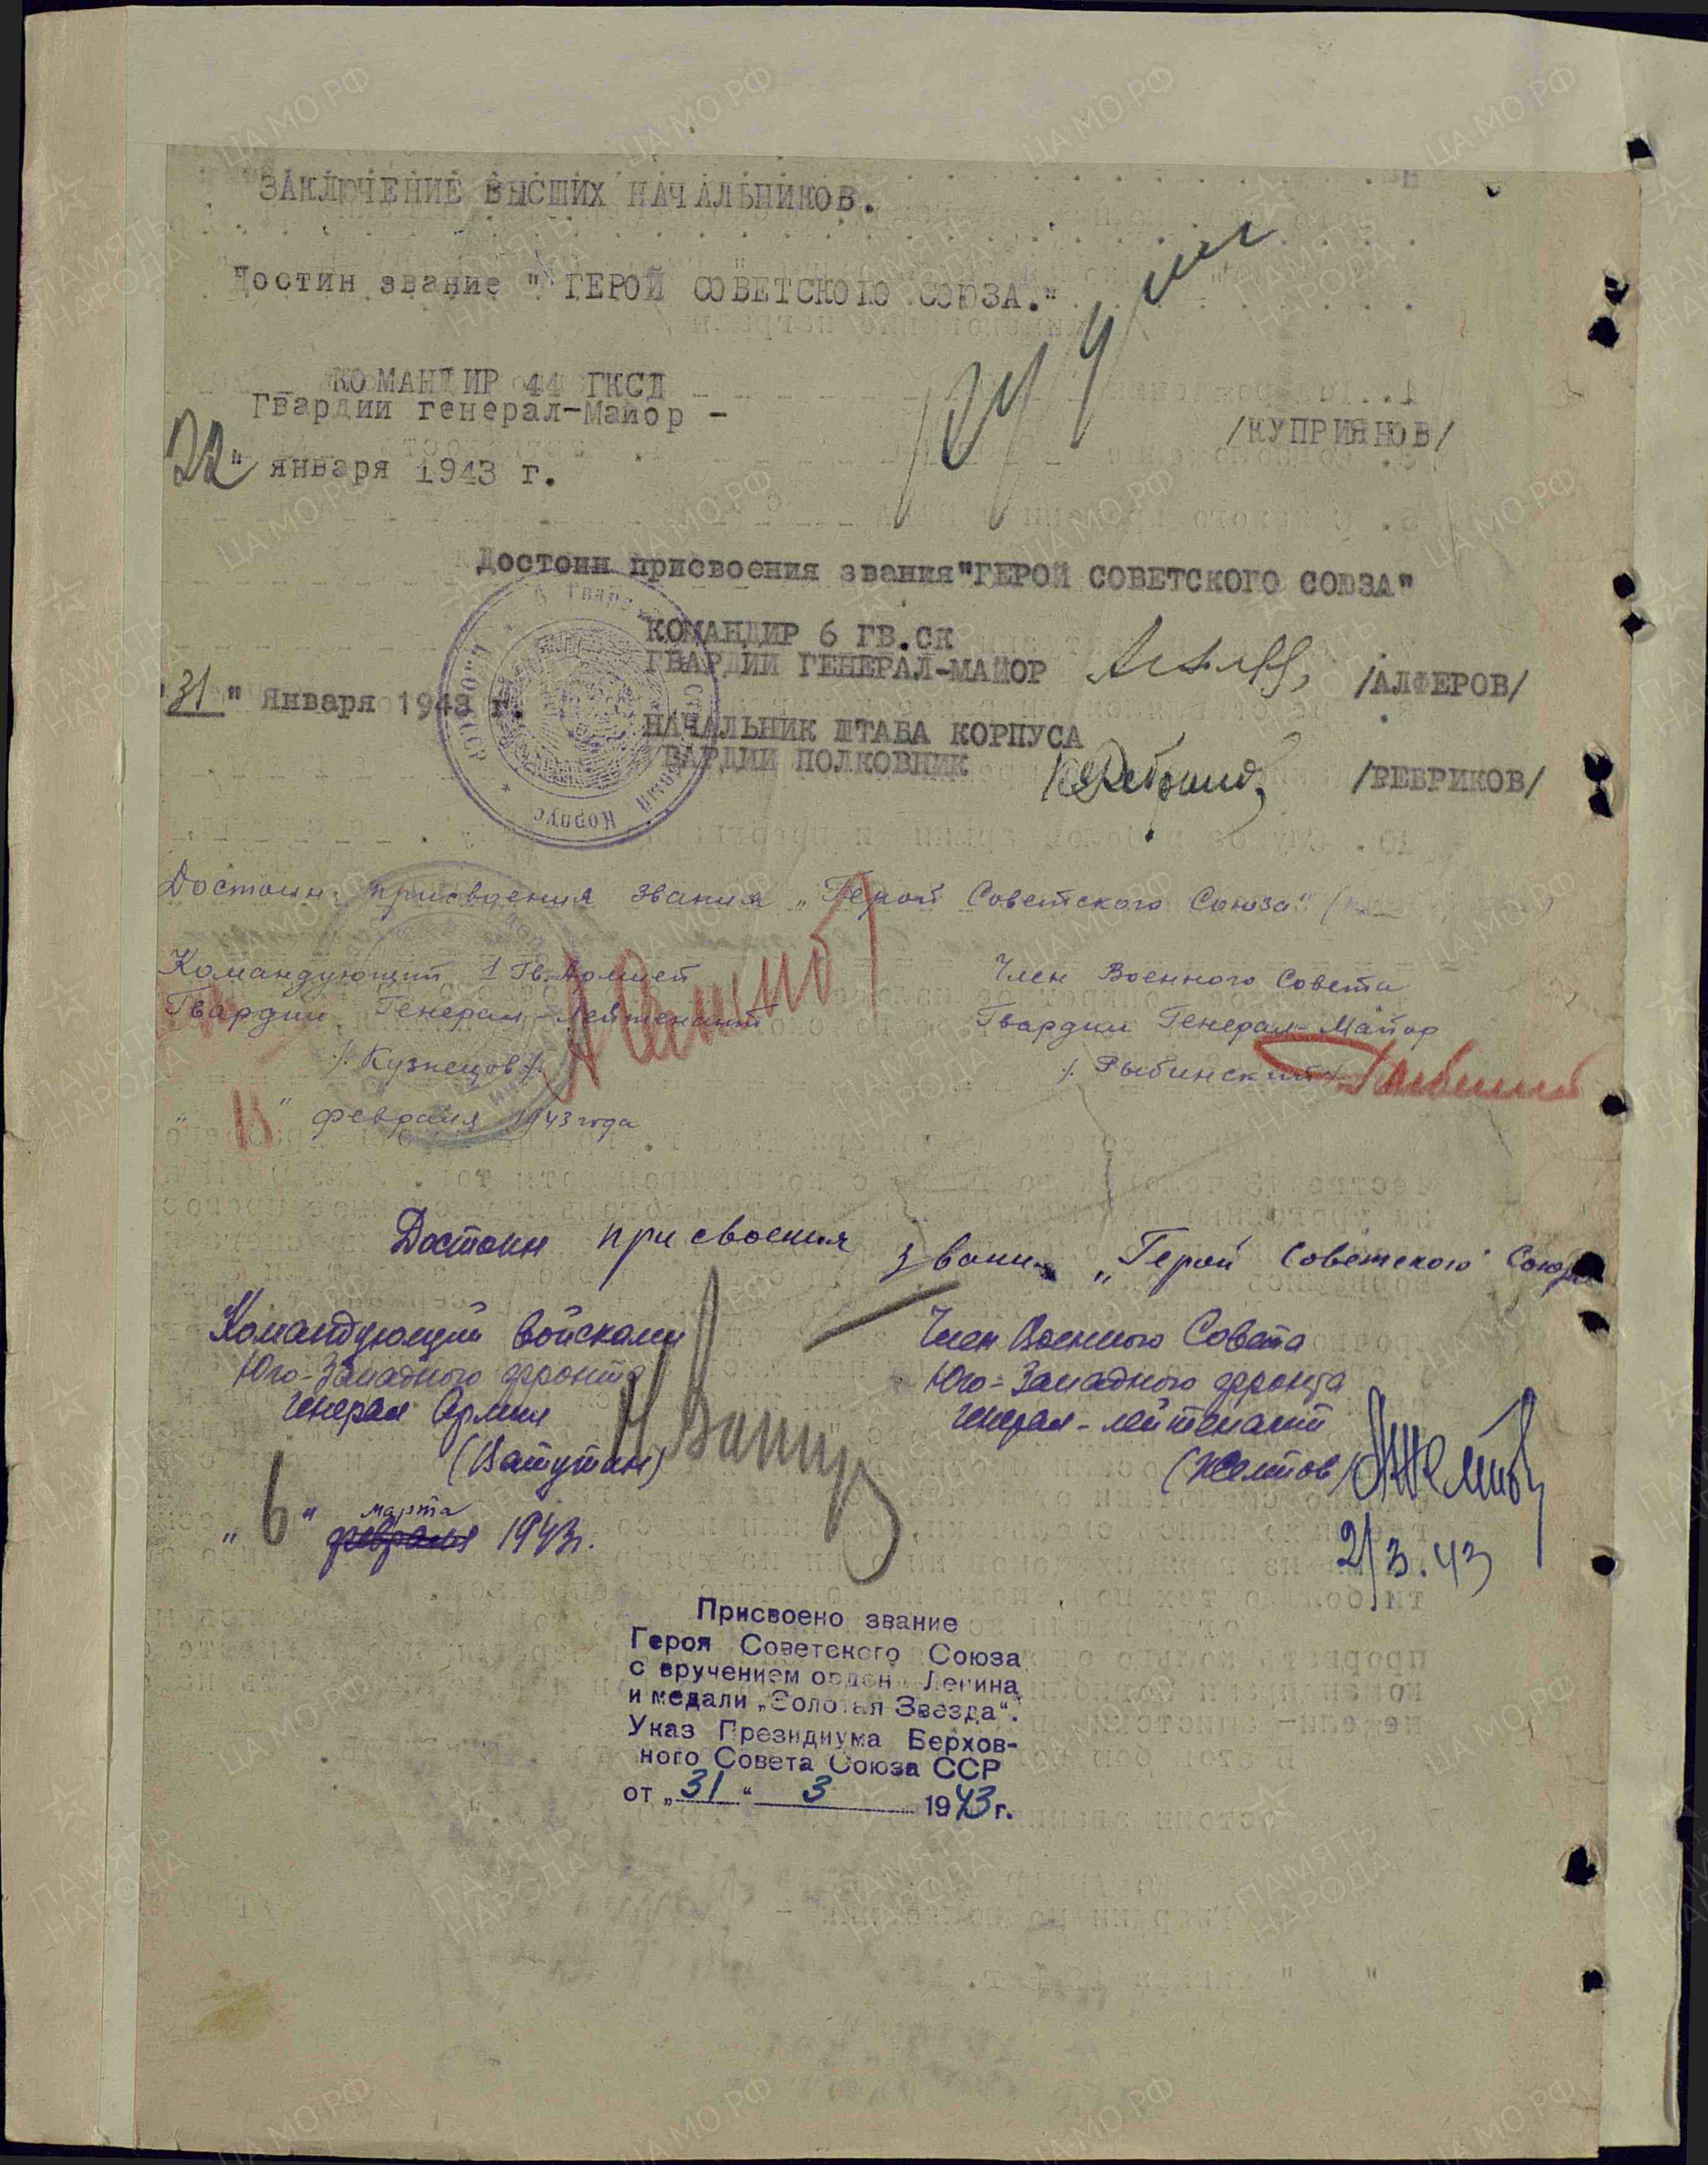 ЗАКЛЮЧЕНИЕ ВЫСШИХ НАЧАЛЬНИКОВ.
Достин звание " ГЕРОЙ СОВЕТСКОГО СОЮЗА."
КОМАНДИР 44 ГКСД
Гвардии генерал-Майор -
/КУПРИЯНОВ/
22" января 1943 г.
Достоин присвоения звания "ГЕРОЙ СОВЕТСКОГО СОЮЗА"
КОМАНДИР 6 ГВ.СК
ГВАРДИИ ГЕНЕРАЛ-МАЙОР
/АЛФЕРОВ/
"31" Января 1943 г.
НАЧАЛЬНИК ШТАБА КОРПУСА
ГВАРДИИ ПОЛКОВНИК
/РЕБРИКОВ/
Достоин присвоения звания „Герой Советского Союза"
Командующий 1 Гв. Армией
Гвардии Генерал-Лейтенант
/Кузнецов/
Член Военного Совета
Гвардии Генерал-Майор
/Рыбинский/
" " февраля 1943 года
Достоин присвоения звания „Герой Советского Союза
Командующий войсками
Юго-Западного фронта
Генерал Армии
(Ватутин)
Член Военного Совета
Юго-Западного фронта
генерал-лейтенант
(Желтов)
„6" марта февраля 1943г.
2/3.43
Присвоено звание
Героя Советского Союза
с вручением орден Ленина
и медали „Золотая Звезда".
Указ Президиума Верхов-
ного Совета Союза ССР
от „31" 3 1943 г.
ЦА МО РФ
ПАМЯТЬ НАРОДА